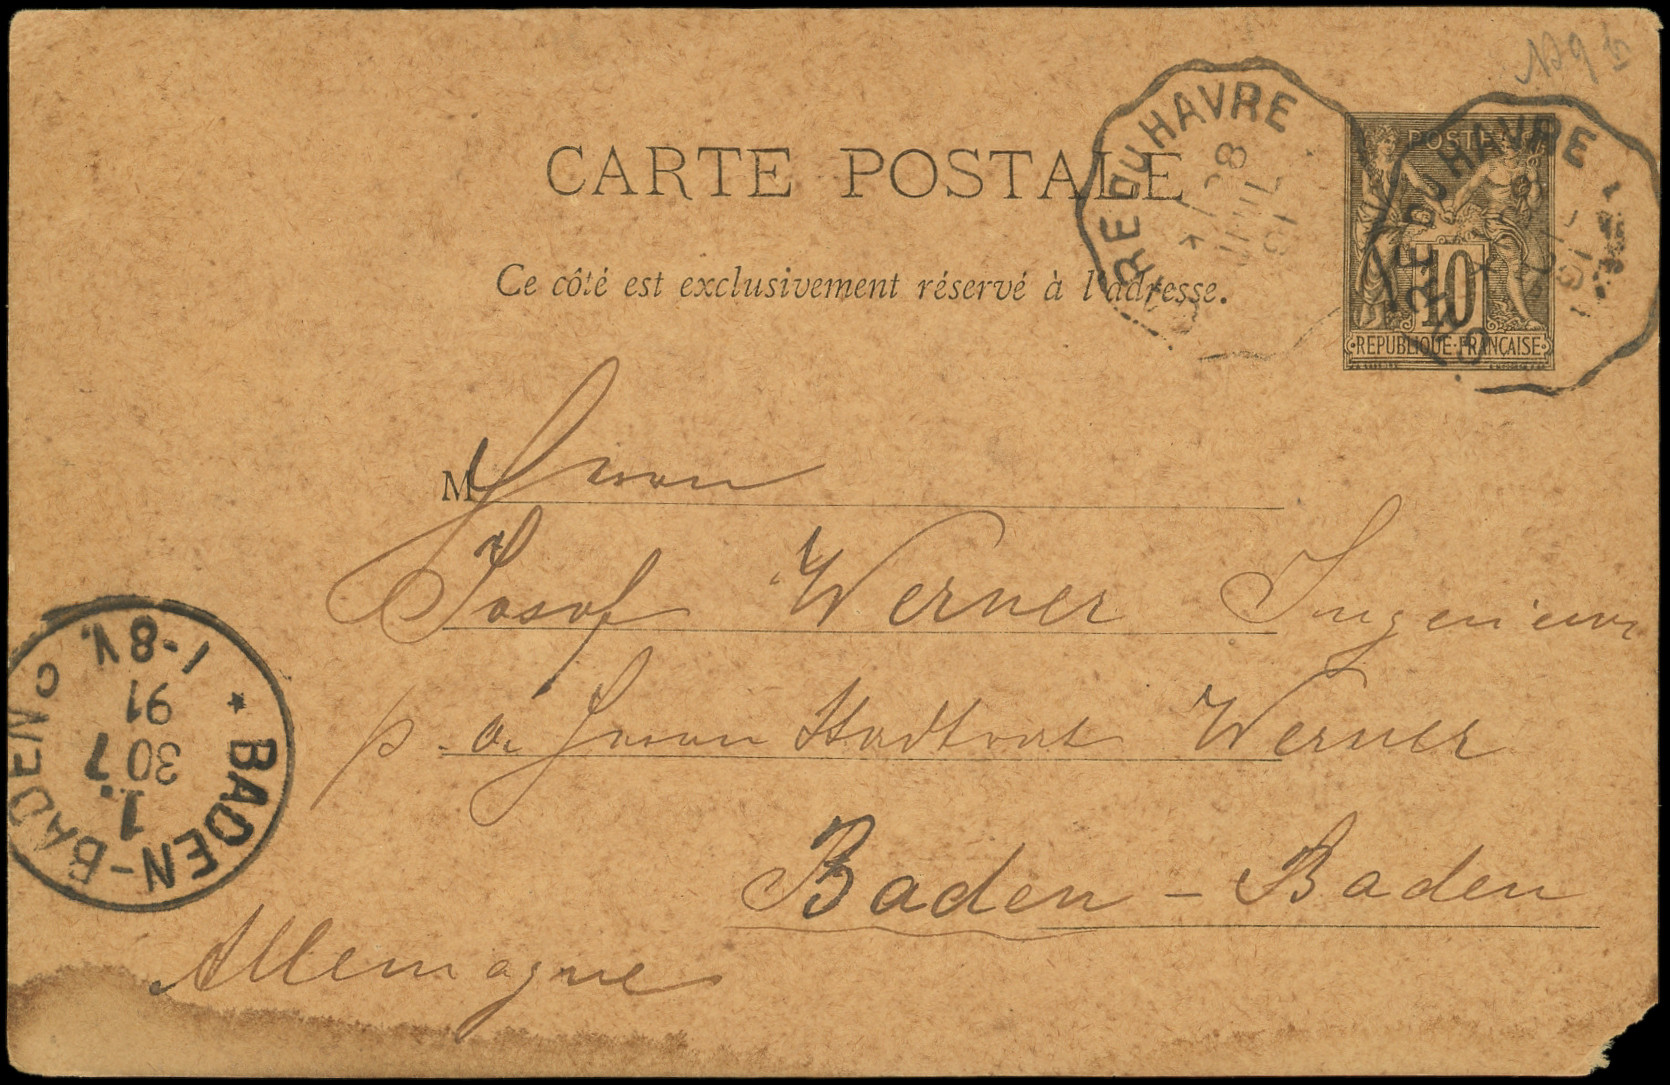 CARTE POSTALE
Ce côté est exclusivement réservé à l'adresse.
GARE DU HAVRE
28
JUIL
91
GARE DU HAVRE
JUIL
91
POSTES
10
REPUBLIQUE FRANÇAISE
M Herrn
Josef Werner Ingenieur
p. a. Herrn Stadtrat Werner
Baden-Baden
Allemagne
BADEN-BADEN
1.
30 7
91
1-8V.